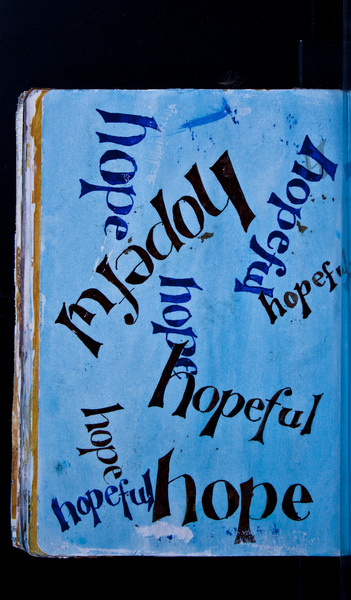 hope
hopeful
hopeful
hopeful
hope
hopeful
hope
hopeful
hope